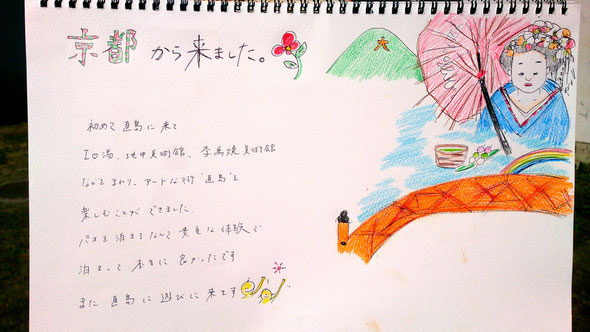 京都から来ました。
大
初めて直島に来て
I♡湯、地中美術館、李禹煥美術館
などをまわり、アートな街"直島"を
楽しむことができました。
パオに泊まるなんて貴重な体験で
泊まって本当に良かったです
また直島に遊びに来ます